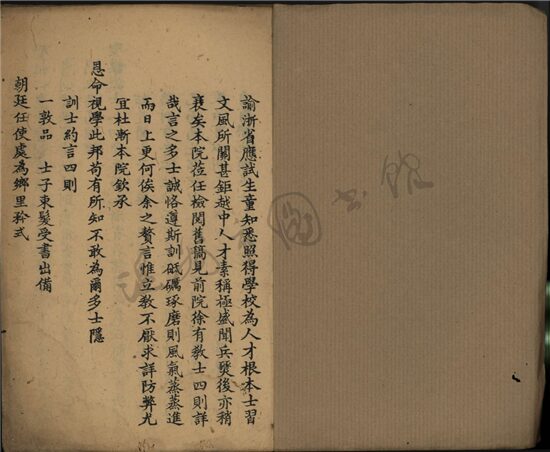 諭浙省應試生童知悉照得學校為人才根本士習
文風所關甚鉅越中人才素稱極盛聞兵燹後亦稍
衰矣本院莅任檢閱舊牘見前院徐有教士四則詳
哉言之多士誠恪遵斯訓砥礪琢磨則風氣蒸蒸進
而日上更何俟余之贅言惟立教不厭求詳防弊尤
宜杜漸本院欽承
恩命視學此邦苟有所知不敢為爾多士隱
訓士約言四則
一敦品 士子束髮受書出備
朝廷任使處為鄉里矜式